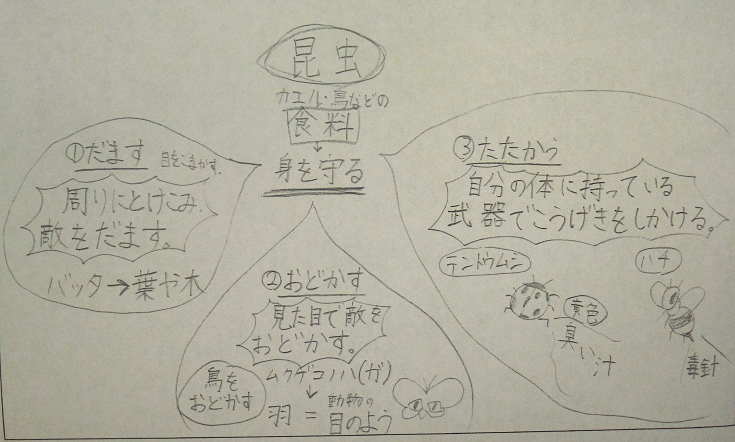 昆虫
カエル・鳥などの
食料
↓
身を守る
①だます 目をごまかす。
周りにとけこみ、
敵をだます。
バッタ→葉や木
②おどかす
見た目で敵を
おどかす。
ムクゲコノハ(ガ)
↓
羽 = 動物の
目のよう
鳥を
おどかす
③たたかう
自分の体に持っている
武器でこうげきをしかける。
テンドウムシ
黄色
臭い汁
ハチ
毒針